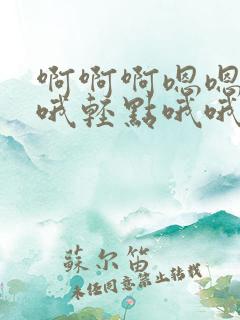 啊啊啊嗯嗯
哦轻點哦哦
蘇尔笛
未经同意禁止转载